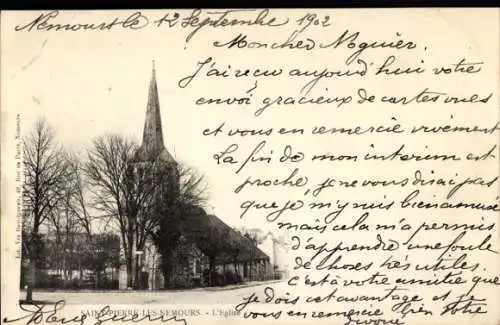 Nemours le 12 Septembre 1902
Mon cher Noguier.
J'ai reçu aujourd'hui votre
envoi gracieux de cartes vues
et vous en remercie vivement
La fin de mon interim est
proche, je ne vous dirai pas
que je m'y suis bien amusé
mais cela m'a permis
d'apprendre une foule
de choses très utiles.
C'est à votre amitié que
je dois cet avantage et
vous en remercie bien
SAINT-PIERRE-LES-NEMOURS. - L'Eglise